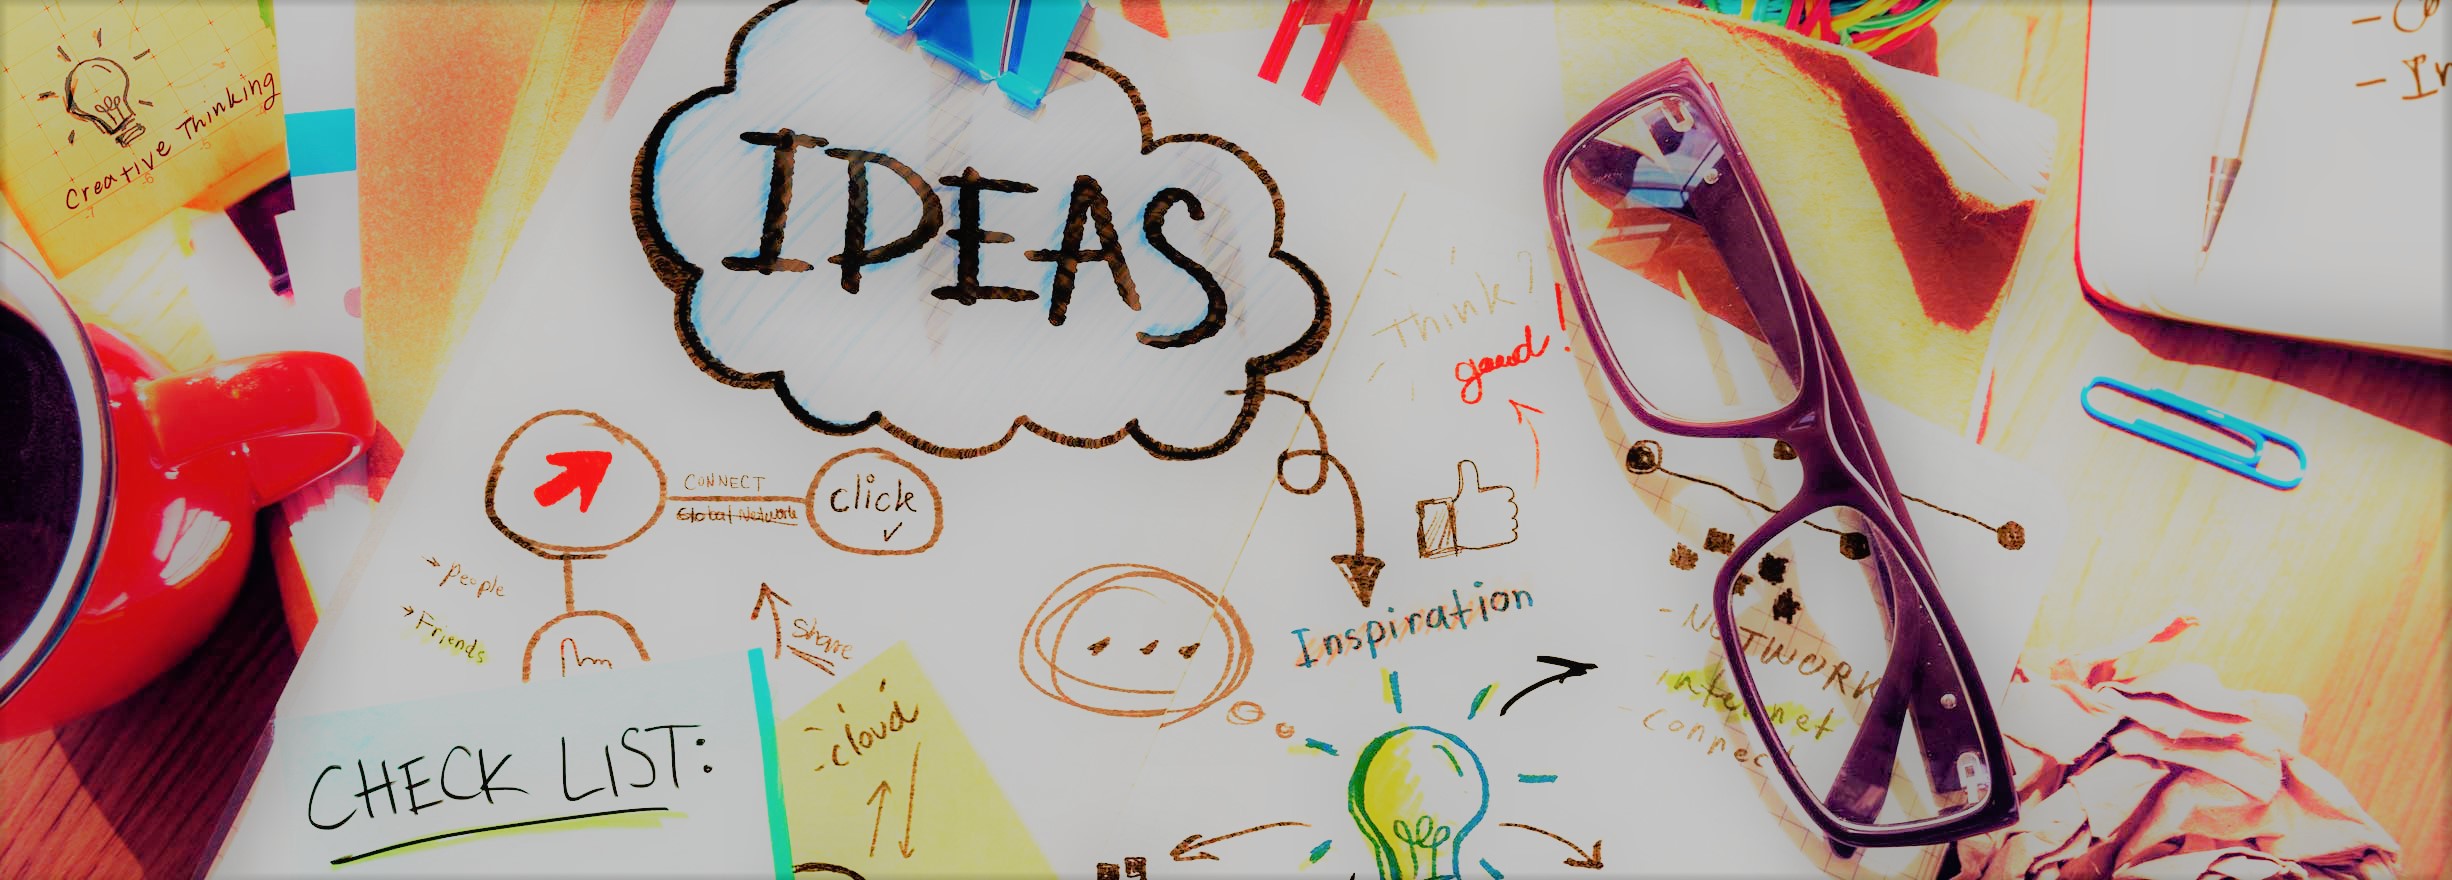 Creative Thinking
IDEAS
Think?
good!
CONNECT
Global Network
click
people
Friends
Share
Inspiration
- NETWORK
- internet
- connect
CHECK LIST:
- cloud